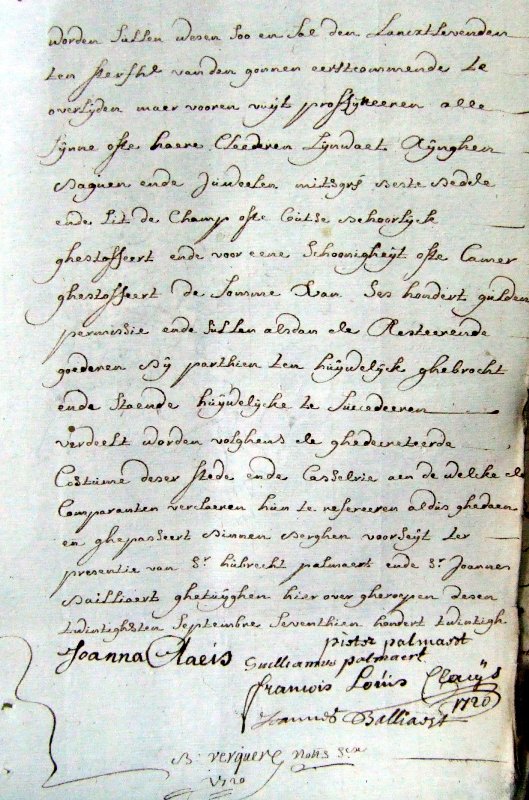 worden sullen wesen soo en sal den Lancxtlevenden
ten sterfhe vanden gonnen eerstcommende te
overlyden maer vooren uuyt proffyteeren alle
synne ofte haere Cleederen Lynwaet Rynghen
Baguen ende Juweelen mitsgrs beste bedde
ende Lit de Champ ofte Coutse behoorlyck
ghestoffeert ende voor eene schoonigheyt ofte Camer
ghestoffeert de somme van ses hondert gulden
permissie ende sullen alsdan de Resteerende
goederen by parthien ten huywelyck ghebrocht
ende staende huywelycke te succedeeren
verdeelt worden volghens de ghedecreteerde
Costume deser stede ende Casselrie aen de welcke de
Comparanten verclaeren hun te refereeren aldus ghedaen
en ghepasseert binnen Berghen voorseyt ter
presentie van Sr. hubrecht palmaert ende Sr. Joannes
Bailliaert ghetuyghen hier over gheroepen desen
twintighsten Septembre seventhien hondert twintigh
pieter palmaert
Joanna Claeis Guilliamus palmaert
francois Louis Claeijs
1720
Joannes Balliaert
B. verquere nots
1720